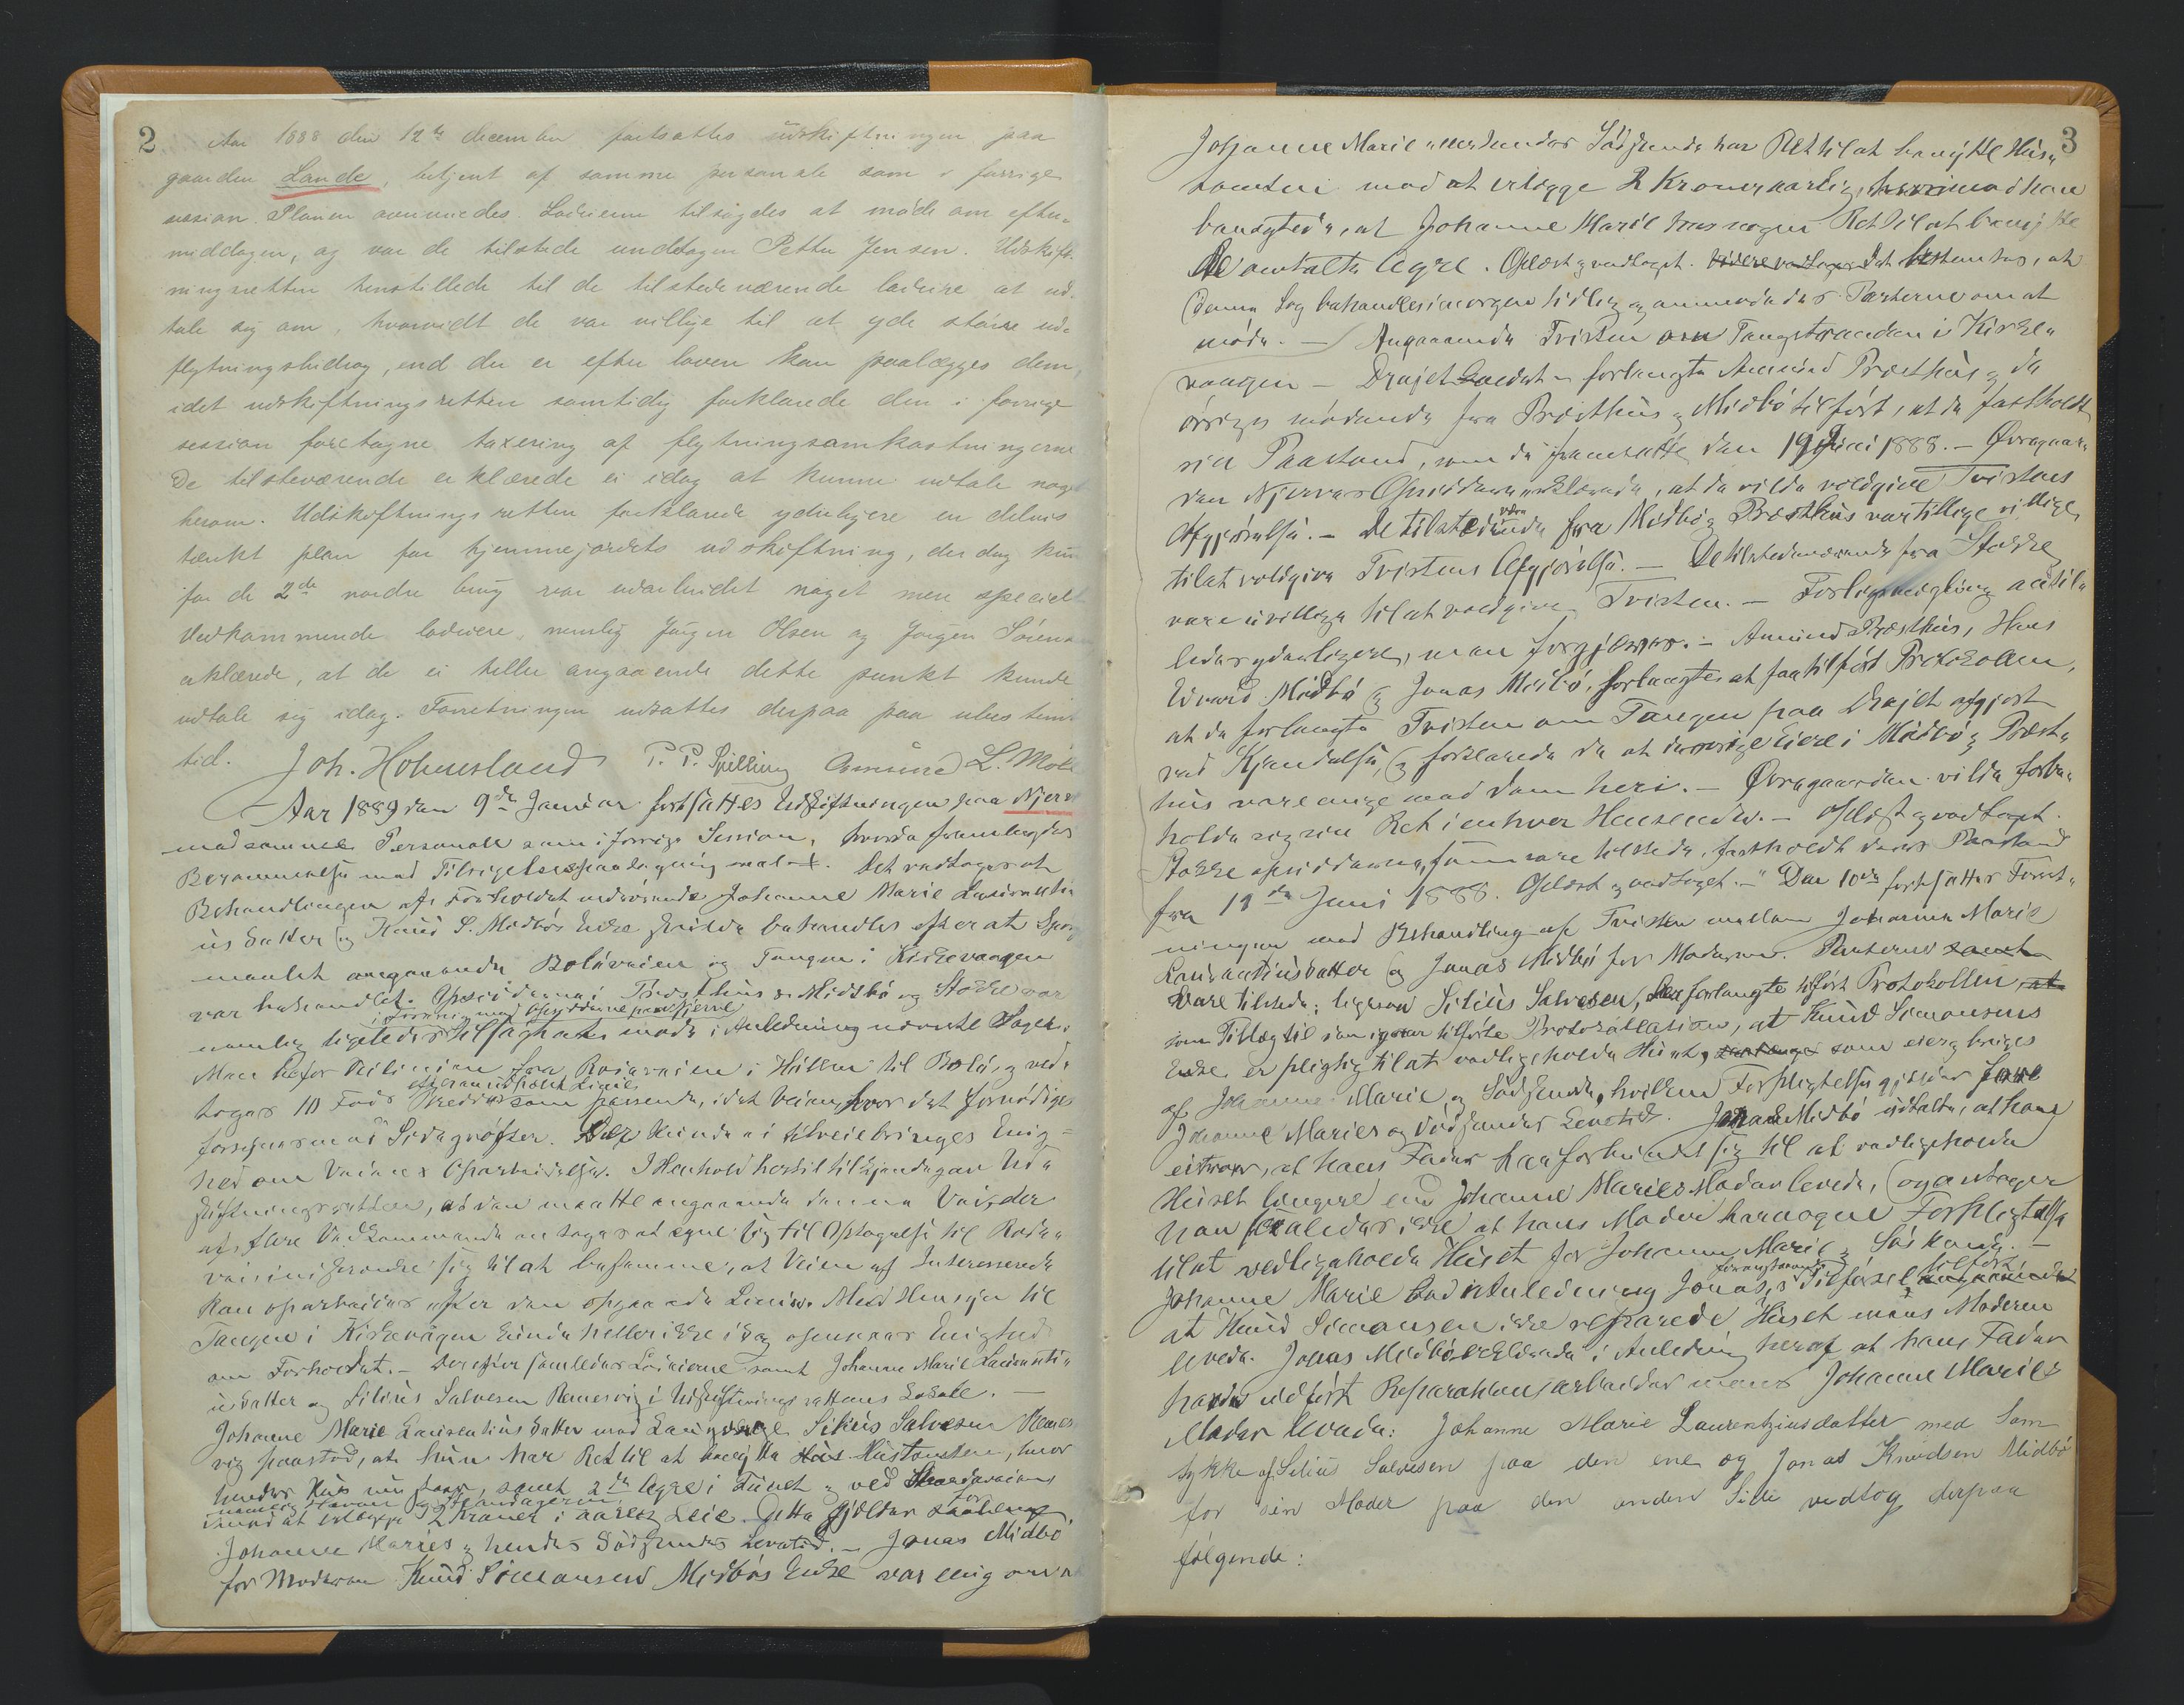 2
Aar 1888 den 12te december fortsattes udskiftningen paa
gaarden Lande, betjent af samme personale som i forrige
session. Planen anmeldes. Lodeierne tilsagdes at møde om efter-
middagen, og var de tilstede undtagen Petter Jensen. Udskift-
ningsretten henstillede til de tilstedeværende lodeiere at ud-
tale sig om, hvorvidt de var villige til at yde større ud-
flytningsbidrag, end der er efter loven kan paalægges dem,
idet udskiftningsretten samtidig forklarede den i forrige
session foretagne taxering af flytningsomkostningerne
De tilsteværende erklærede ei idag at kunne udtale noget
herom. Udskiftningsretten forklarede yderligere en delvis
tænkt plan for hjemmejordets udskiftning, der dog kun
for de 2de nordre brug var udarbeidet noget mere specielt
Vedkommende lodeiere, nemlig Jørgen Olsen og Jørgen Sørensen
erklærede, at de ei heller angaaende dette punkt kunde
udtale sig idag. Forretningen udsattes derpaa paa ubestemt
tid. Joh. Holmesland P. P. Spilling Amund L. Møll
Aar 1889 den 9de Januar fortsattes Udskiftningen paa Njerve
med samme Personale som i forrige Session, hvorda fremlagdes
Berammelse med Tilsigelsespaategning Det vedtoges at
Behandlingen af Forholdet vedrørende Johanne Marie Laurenti-
usdatter og Knud S. Midbøs Enke skulde behandles efter at Spørgs-
maalet angaaende Boløveien og Tangen i Kirkevaagen
var behandlet. Opsidderne i Præsthus & Midbø og Stokke var
i Forening med Opsidderne paa Njerve
nemlig ligeledes tilsagt at møde i Anledning nævnte Sager.
Man befor Veilinien fra Roiaveien i Hullen til Bolø, og ved-
toges 10 Fods Bredde som passende, idet Veien, hvor det fornødiges
forsynes med Sidegrøfter. Der kunde ei tilveiebringes Enig-
hed om Veiens Oparbeidelse. I Henhold hertil tilkjendegav Ud-
skiftningsretten, at den maatte angaaende denne Vei, der
af flere Vedkommende antoges at egne sig til Optagelse til Rode-
vei indskrænke sig til at bestemme, at Veien af Interesserede
kan oparbeides efter den opgaaede Linie. Med Hensyn til
Tangen i Kirkevaagen kunde heller ikke idag opnaaes Enighed
om Forholdet. — Derefter samledes Lodeierne samt Johanne Marie Laurenti-
usdatter og Silius Salvesen Rennesvig i Udskiftningsrettens Lokale. —
Johanne Marie Laurentiusdatter med Laugværge Silius Salvesen Rennes-
vig paastod, at hun har Ret til at benytte Hustomten, hvor
hendes Hus nu staar, samt 2de Agre i Tunet & ved Strandveien
imod at erlægge 2 Kroner i aarlig Leie. Dette gjelder saalænge
Johanne Maries & hendes Sødskendes Levetid. — Jonas Midbø
for Moderen Knud Simonsens Midbøs Enke var enig om at
3
Johanne Marie med hendes Sødskende har Ret til at benytte Hus-
tomten mod at erlægge 2 Kroner aarlig, hvorimod han
benegtede, at Johanne Marie har nogen Ret til at benytte
De omtalte Agre. Oplæst & vedtaget. Det bestemtes, at
denne Sag behandles imorgen tidlig og anmodedes Parterne om at
møde. — Angaaende Tvisten om Tangstranden i Kirke-
vaagen — Drajet kaldet — forlangte Amund Præsthus & de
øvrige mødende fra Præsthus & Midbø tilført, at de fastholdt
sin Paastand, som de fremsatte den 19 Juni 1888. — Øvregaar-
den Njerves Opsiddere erklærede, at de vilde voldgive Tvistens
Afgjørelse. — De tilstedeværende fra Midbø & Præsthus var tillige villige
til at voldgive Tvistens Afgjørelse. — De tilstedeværende fra Stokke
vare uvillige til at voldgive Tvisten. — Forligsmegling anstil-
ledes yderligere, men forgjæves. — Amund Præsthus, Hans
Edvard Midbø & Jonas Midbø, forlangte at faa tilført Protokollen,
at de forlangte Tvisten om Tangen paa Drajet afgjort
ved Kjendelse, & forklarede de at de øvrige Eiere i Midbø & Præst-
hus vare enige med dem heri. — Øvregaarden vilde forbe-
holde sig sin Ret i enhver Henseende. — Oplæst & vedtaget.
Stokke opsidderne, som vare tilstede, fastholdt deres Paastand
fra 19de Juni 1888. Oplæst & vedtaget. — Den 10de fortsattes Forret-
ningen med Behandling af Tvisten mellem Johanne Marie
Laurentiusdatter og Jonas Midbø for Moderen. Parterne
vare tilstede; ligesom Silius Salvesen, forlangte tilført Protokollen
som Tillæg til sin igaar tilførte Protokollation, at Knud Simonsens
Enke er pligtig til at vedligeholde Huset, som eies & bruges
af Johanne Marie & Sødskende, hvilken Forpligtelse gjælder
Johanne Maries og Sødskendes Levetid. Jonas Midbø udtalte, at hans
at hans Fader har forbundet sig til at vedligeholde
Huset længere end Johanne Maries Moder levede, og antager
han saaledes ikke at hans Moder har nogen Forpligtelse
til at vedligeholde Huset for Johanne Marie & Søskende. —
Johanne Marie bad i Anledning Jonas's foranstaaende Tilførsel tilført
at Knud Simonsen ikke reparede Huset mens Moderen
levede. Jonas Midbø erklærede i Anledning heraf at hans Fader
havde udført Reparationsarbeider mens Johanne Maries
Moder levede: Johanne Marie Laurentziusdatter med Sam-
tykke af Silius Salvesen paa den ene og Jonas Knudsen Midbø
for sin Moder paa den anden Side vedtog derpaa
følgende: